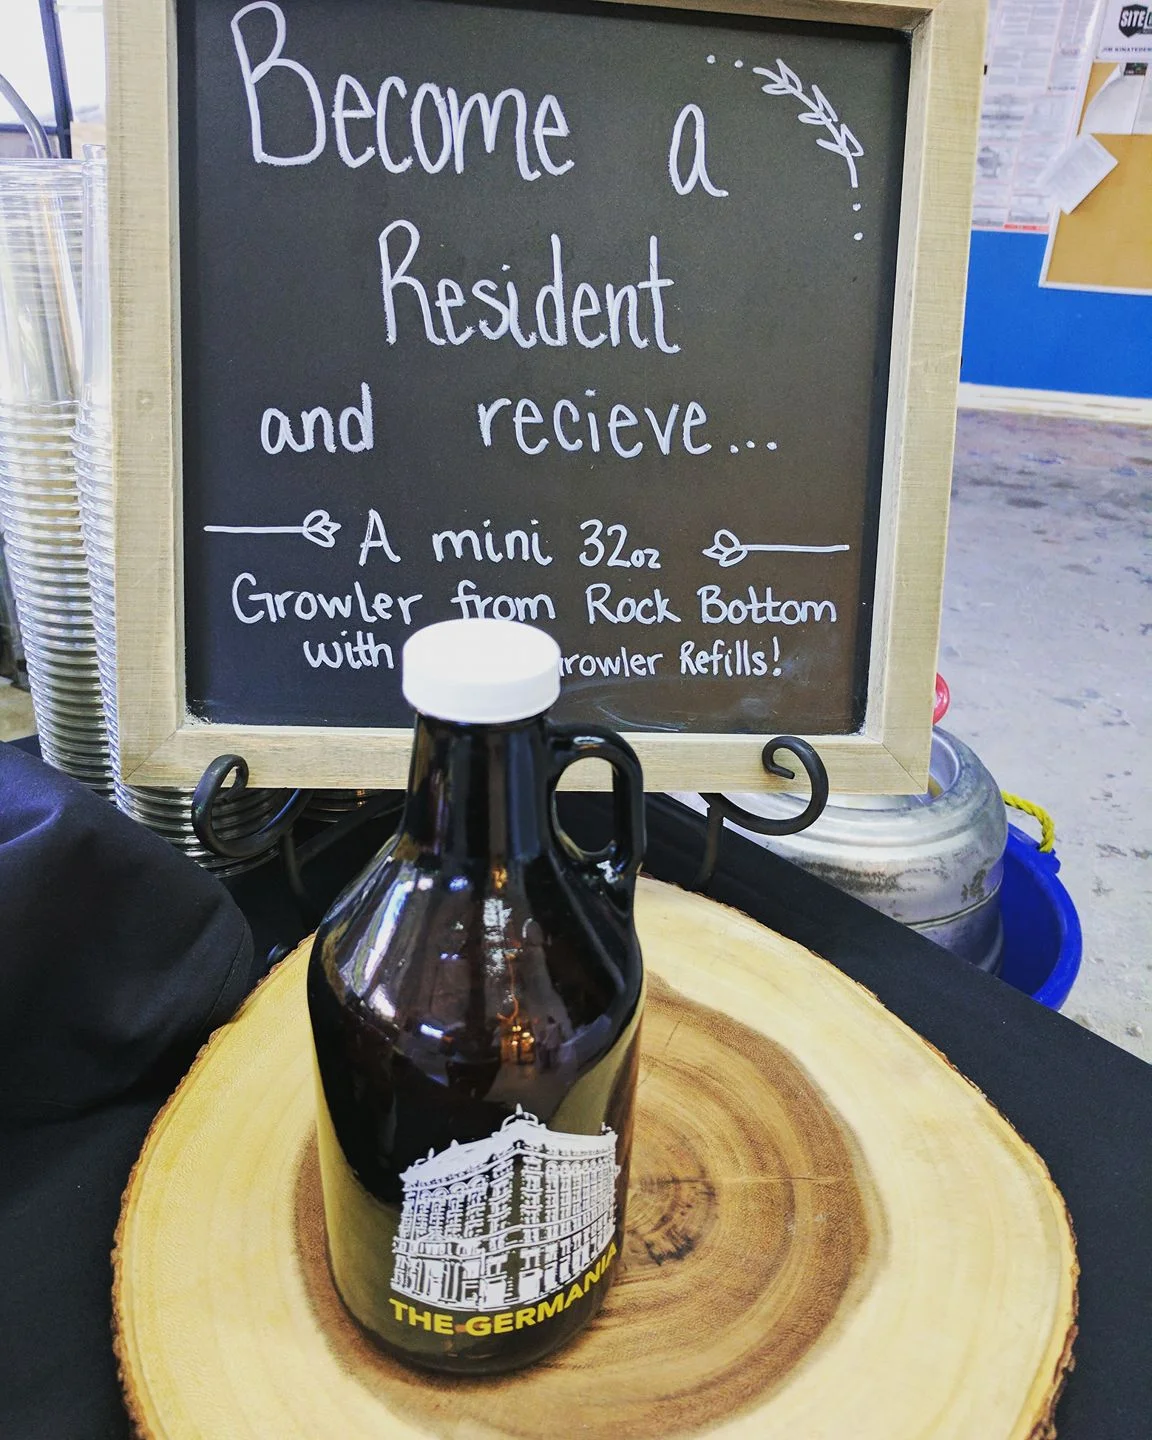 Become a
Resident
and recieve...
A mini 32oz
Growler from Rock Bottom
with Refills!
THE GERMANIA
SITE